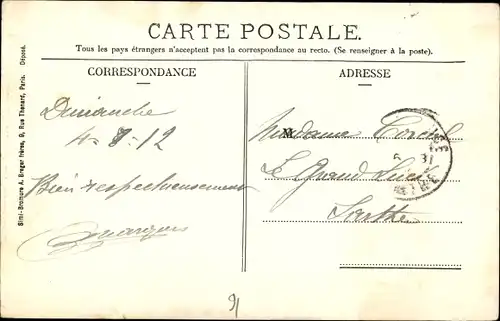 CARTE POSTALE.
Tous les pays étrangers n'acceptent pas la correspondance au recto. (Se renseigner à la poste).
CORRESPONDANCE
Dimanche
4-8-12
Bien respectueusement
ADRESSE
Madame
Le Grand Lucé
Sarthe
Simi-Bromure A. Breger frères, 9, Rue Thénard, Paris. Déposé.
91